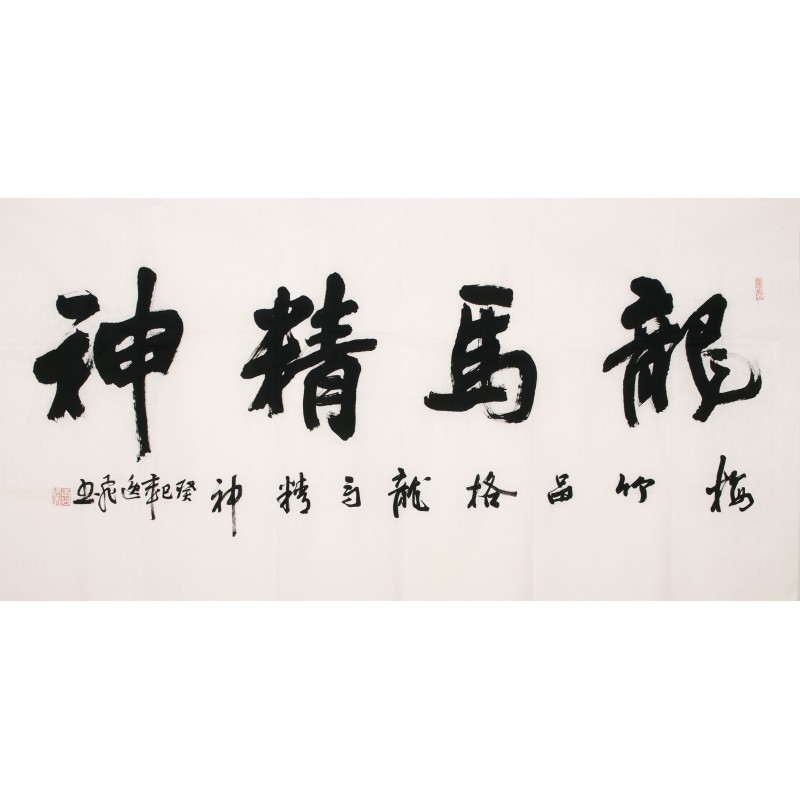 龍馬精神
梅竹品格龍馬精神 癸巳年逸飛書